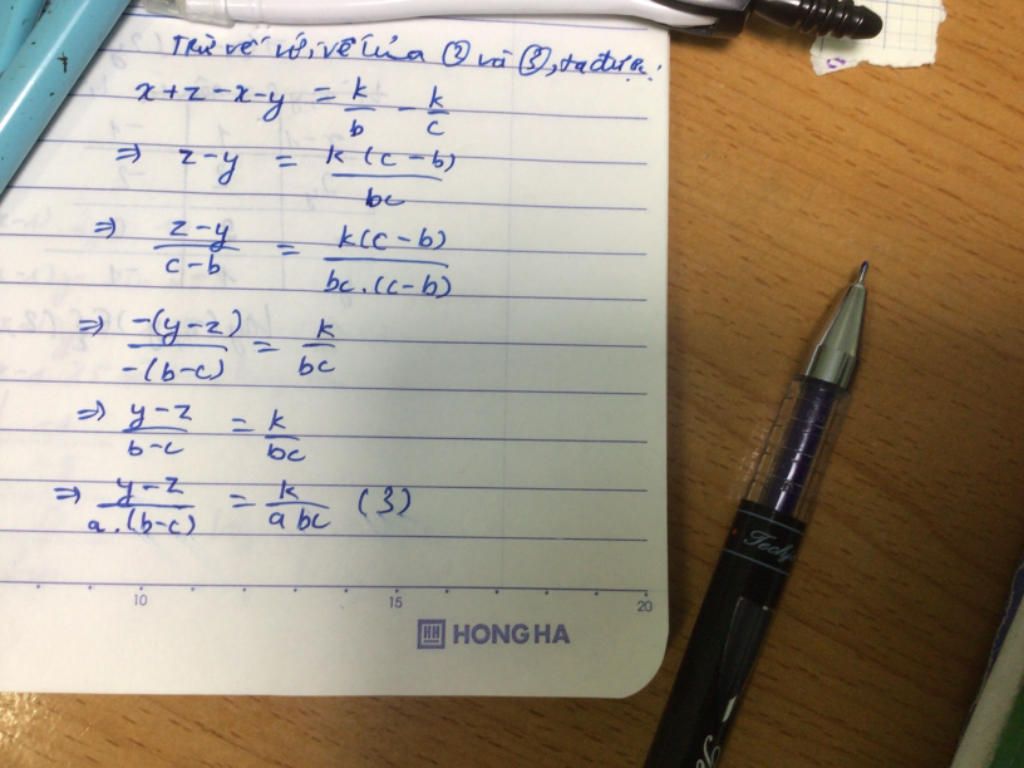 Trừ vế với vế của ② và ③, ta được:
x+z-x-y = k/b - k/c
=> z-y = k(c-b)/bc
=> z-y/c-b = k(c-b)/bc.(c-b)
=> -(y-z)/-(b-c) = k/bc
=> y-z/b-c = k/bc
=> y-z/a.(b-c) = k/abc (3)
10 15 20
HH HONG HA